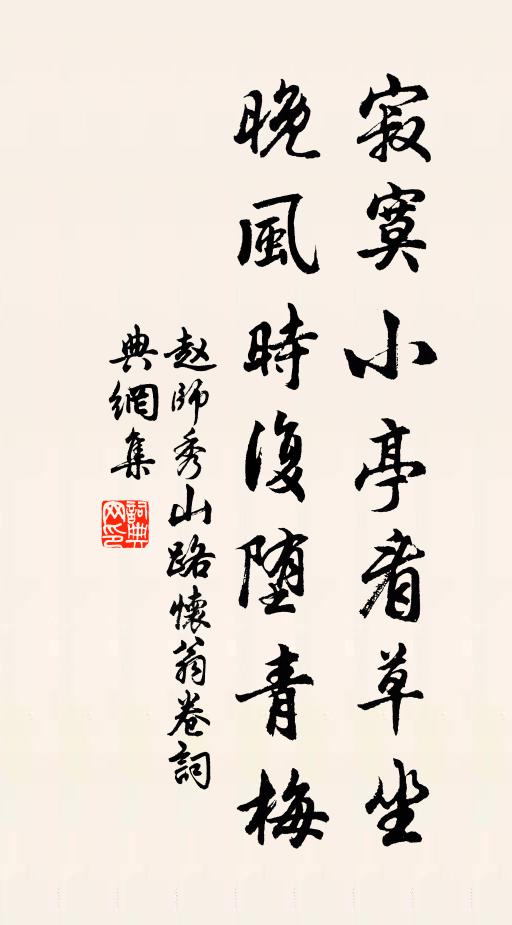 寂寞小亭看草坐
晚風時復墮青梅
赵師秀山路懷翁卷詞
典網集
詞典
网印